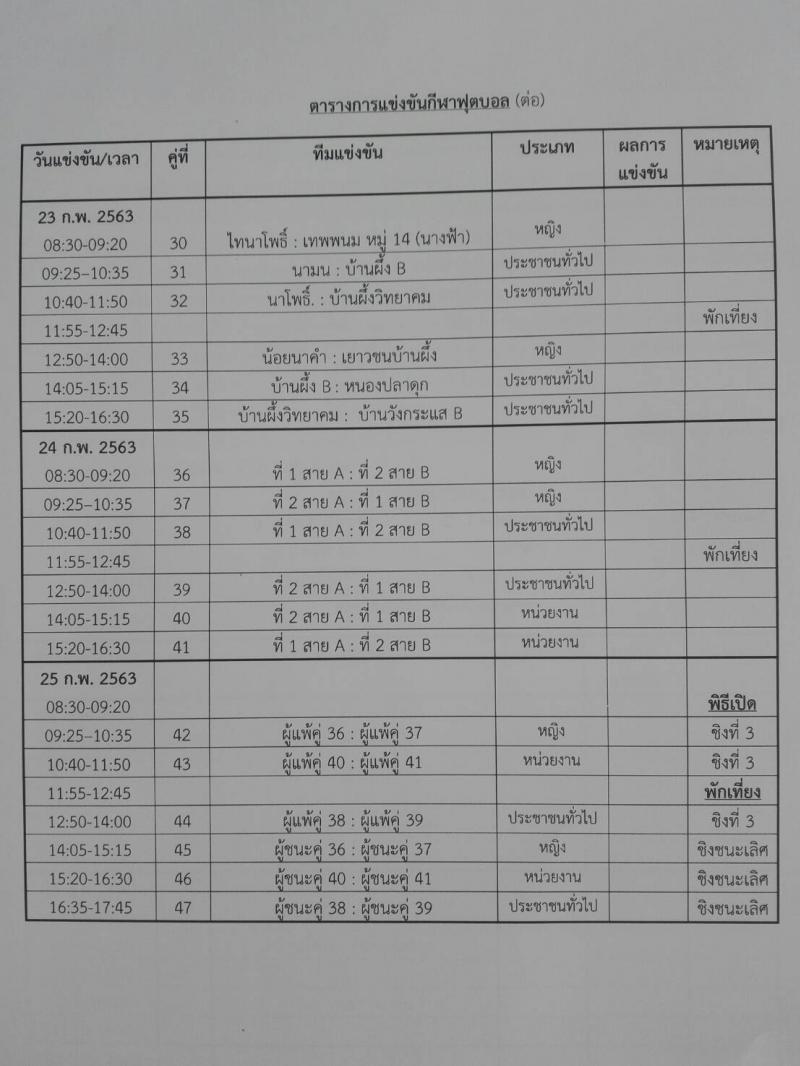 ตารางการแข่งขันกีฬาฟุตบอล (ต่อ)
วันแข่งขัน/เวลา คู่ที่ ทีมแข่งขัน ประเภท ผลการแข่งขัน หมายเหตุ
23 ก.พ. 2563
08:30-09:20 30 ไทนาโพธิ์ : เทพพนม หมู่ 14 (นางฟ้า) หญิง
09:25–10:35 31 นามน : บ้านผึ้ง B ประชาชนทั่วไป
10:40-11:50 32 นาโพธิ์. : บ้านผึ้งวิทยาคม ประชาชนทั่วไป
11:55-12:45 พักเที่ยง
12:50-14:00 33 น้อยนาคำ : เยาวชนบ้านผึ้ง หญิง
14:05-15:15 34 บ้านผึ้ง B : หนองปลาดุก ประชาชนทั่วไป
15:20-16:30 35 บ้านผึ้งวิทยาคม : บ้านวังกระแส B ประชาชนทั่วไป
24 ก.พ. 2563
08:30-09:20 36 ที่ 1 สาย A : ที่ 2 สาย B หญิง
09:25–10:35 37 ที่ 2 สาย A : ที่ 1 สาย B หญิง
10:40-11:50 38 ที่ 1 สาย A : ที่ 2 สาย B ประชาชนทั่วไป
11:55-12:45 พักเที่ยง
12:50-14:00 39 ที่ 2 สาย A : ที่ 1 สาย B ประชาชนทั่วไป
14:05-15:15 40 ที่ 2 สาย A : ที่ 1 สาย B หน่วยงาน
15:20-16:30 41 ที่ 1 สาย A : ที่ 2 สาย B หน่วยงาน
25 ก.พ. 2563
08:30-09:20 พิธีเปิด
09:25–10:35 42 ผู้แพ้คู่ 36 : ผู้แพ้คู่ 37 หญิง ชิงที่ 3
10:40-11:50 43 ผู้แพ้คู่ 40 : ผู้แพ้คู่ 41 หน่วยงาน ชิงที่ 3
11:55-12:45 พักเที่ยง
12:50-14:00 44 ผู้แพ้คู่ 38 : ผู้แพ้คู่ 39 ประชาชนทั่วไป ชิงที่ 3
14:05-15:15 45 ผู้ชนะคู่ 36 : ผู้ชนะคู่ 37 หญิง ชิงชนะเลิศ
15:20-16:30 46 ผู้ชนะคู่ 40 : ผู้ชนะคู่ 41 หน่วยงาน ชิงชนะเลิศ
16:35-17:45 47 ผู้ชนะคู่ 38 : ผู้ชนะคู่ 39 ประชาชนทั่วไป ชิงชนะเลิศ